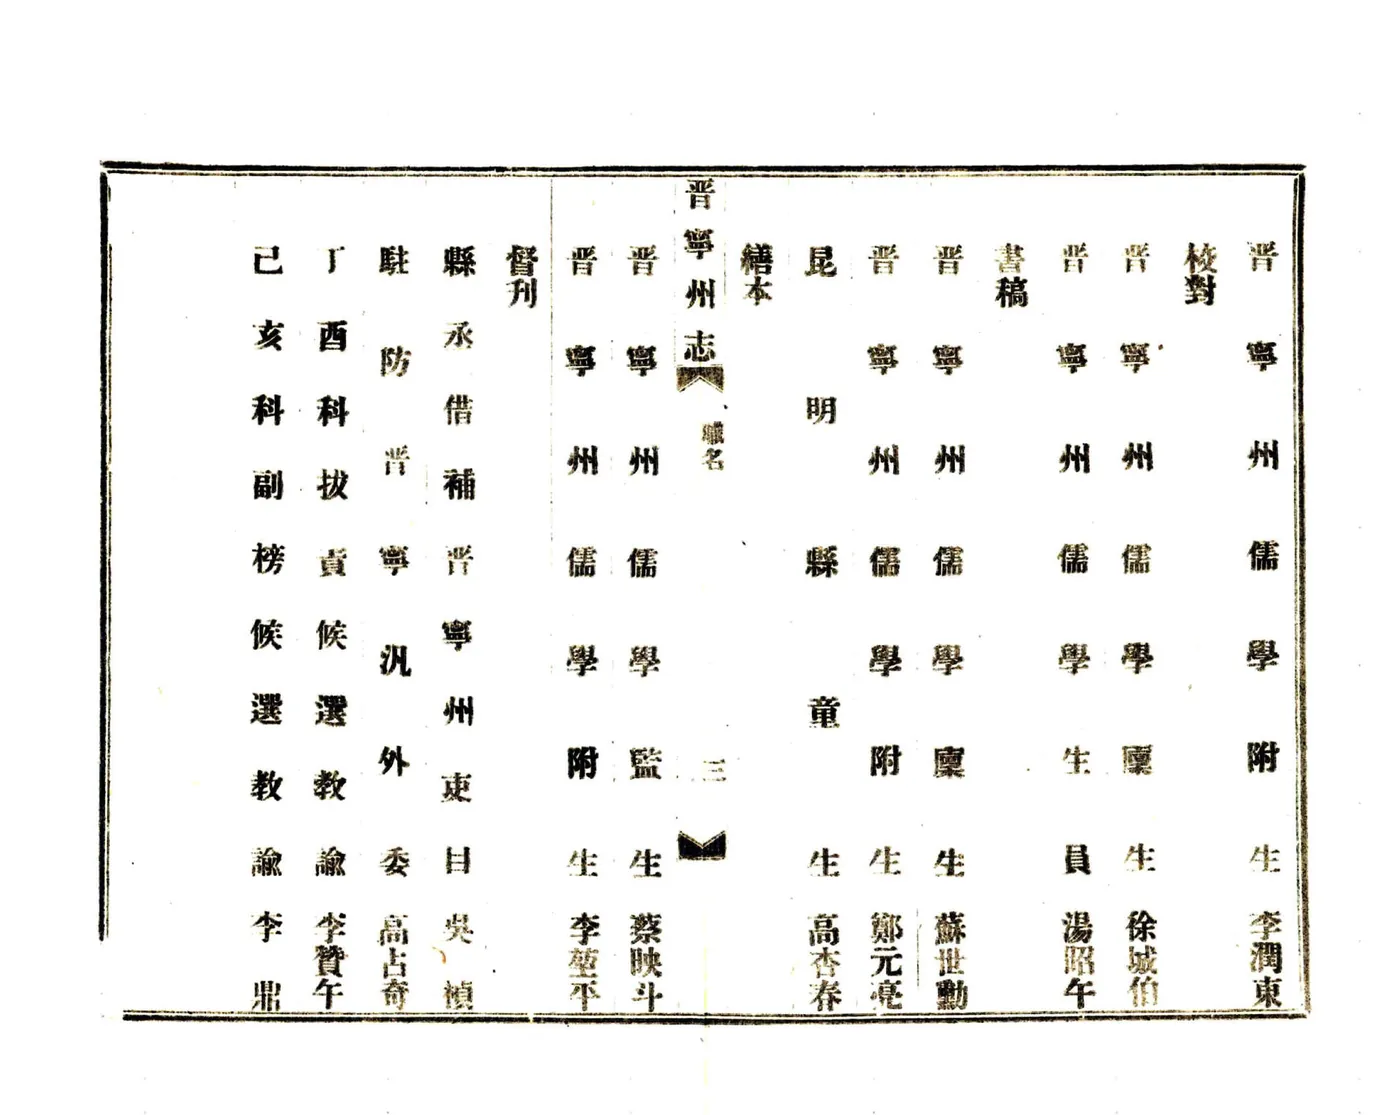 晋寧州儒學附生李潤東
校對
晋寧州儒學廩生徐城伯
晋寧州儒學生員湯昭午
書稿
晋寧州儒學廩生蘇世勳
晋寧州儒學附生鄭元亮
昆明縣童生高杏春
繕本
晋寧州志
職名
三
晋寧州儒學監生蔡映斗
晋寧州儒學附生李堃平
督刊
縣丞借補晋寧州吏目吳楨
駐防晋寧汛外委高占奇
丁酉科拔貢候選教諭李贊午
己亥科副榜候選教諭李鼎